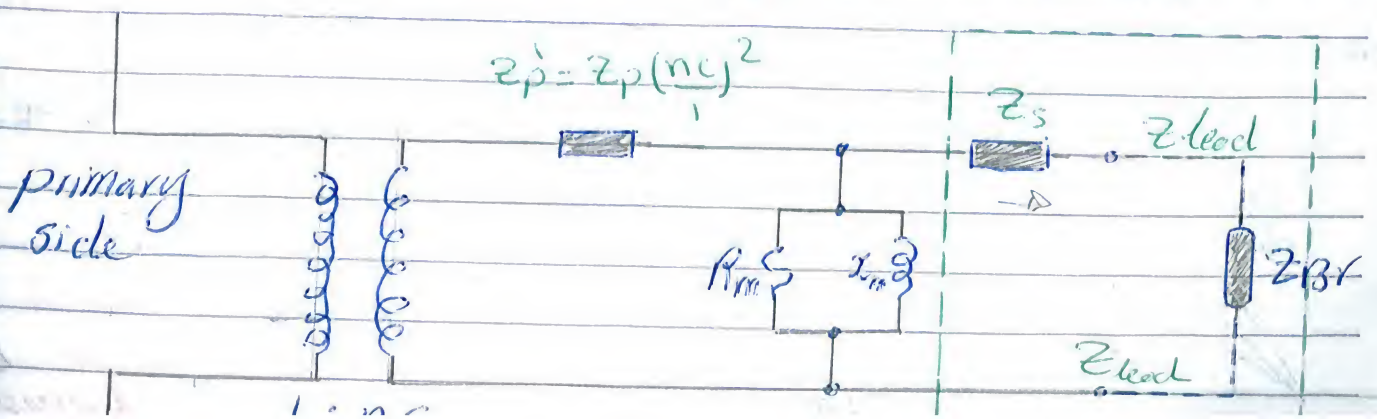 Zp' = Zp(nc/1)²
Zs
Z lead
primary
side
Rm
xm
ZBr
Zlead